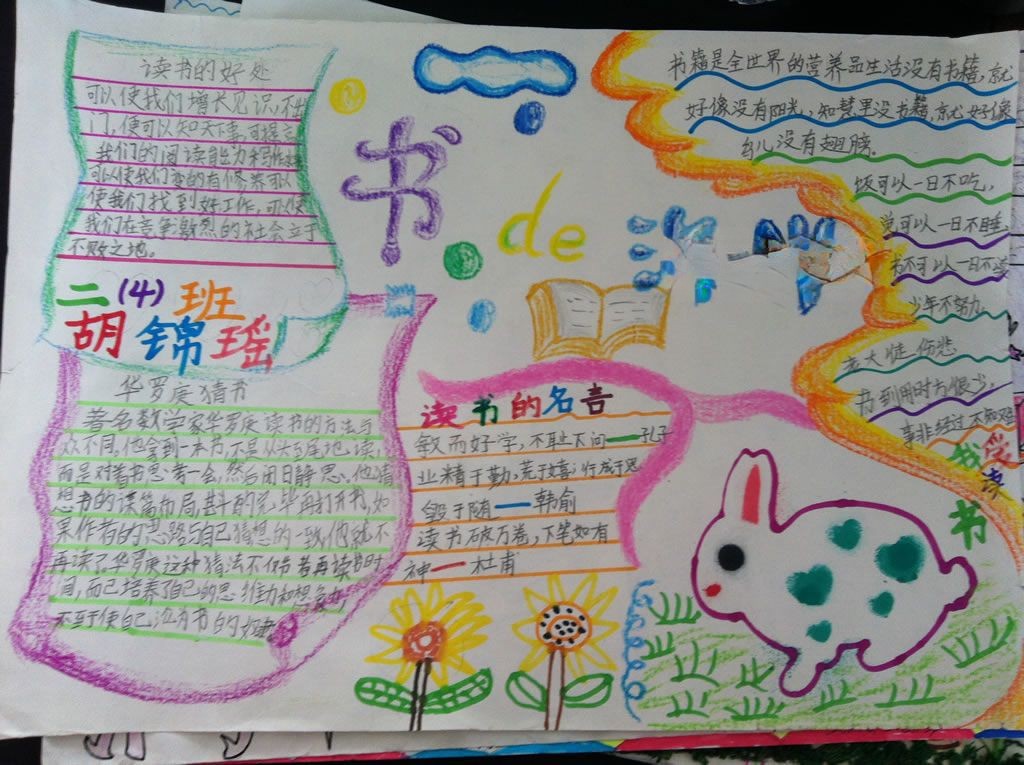 读书的好处
可以使我们增长见识,不出
门,便可以知天下事,可提高
我们的阅读能力和写作
可以使我们变的有修养可以
使我们找到好工作,可以使
我们在竞争激烈的社会立于
不败之地。
二(4)班
胡锦瑶
华罗庚猜书
著名数学家华罗庚读书的方法与
众不同,他拿到一本书,不是从头至尾地读,
而是对着书思考一会,然后闭目静思。他猜
想书的谋篇布局,斟酌完毕再打开书,如
果作者的思路与自己猜想的一致,他就不
再读了华罗庚这种猜法不仅节省再读书时
间,而已培养了自己的思维力和想象力,
不至于使自己沦为书的奴隶
书
de
读书的名言
敏而好学,不耻下问——孔子
业精于勤,荒于嬉;行成于思
毁于随——韩俞
读书破万卷,下笔如有
神——杜甫
书籍是全世界的营养品生活没有书籍,就
好像没有阳光,知慧里没书籍,就好像
鸟儿没有翅膀.
饭可以一日不吃,
觉可以一日不睡,
书不可以一日不读
少年不努力
老大徒伤悲
书到用时方恨少,
事非经过不知难
我爱
读
书